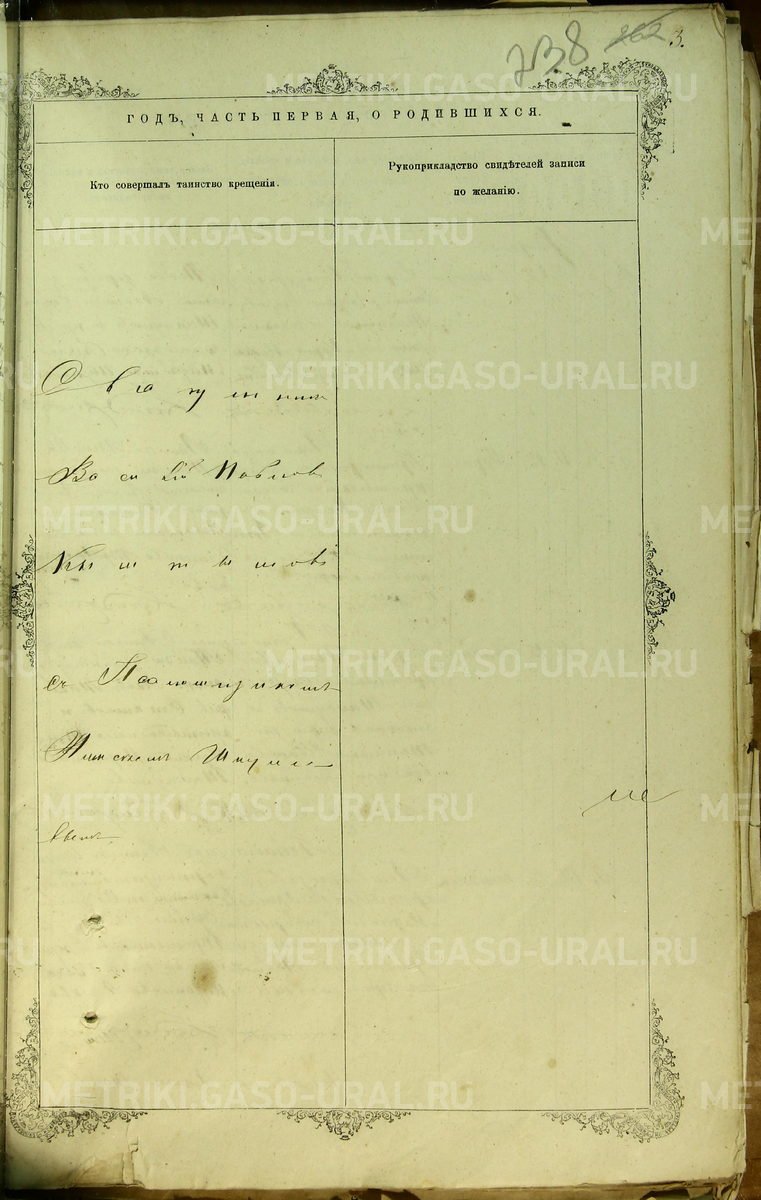 738 262 3.
ГОДЪ, ЧАСТЬ ПЕРВАЯ, О РОДИВШИХСЯ.
Кто совершалъ таинство крещенія.
Рукоприкладство свидѣтелей записи
по желанію.
METRIKI.GASO-URAL.RU
Священникъ
Василій Павловъ
Кыштымовъ
съ Псаломщикомъ